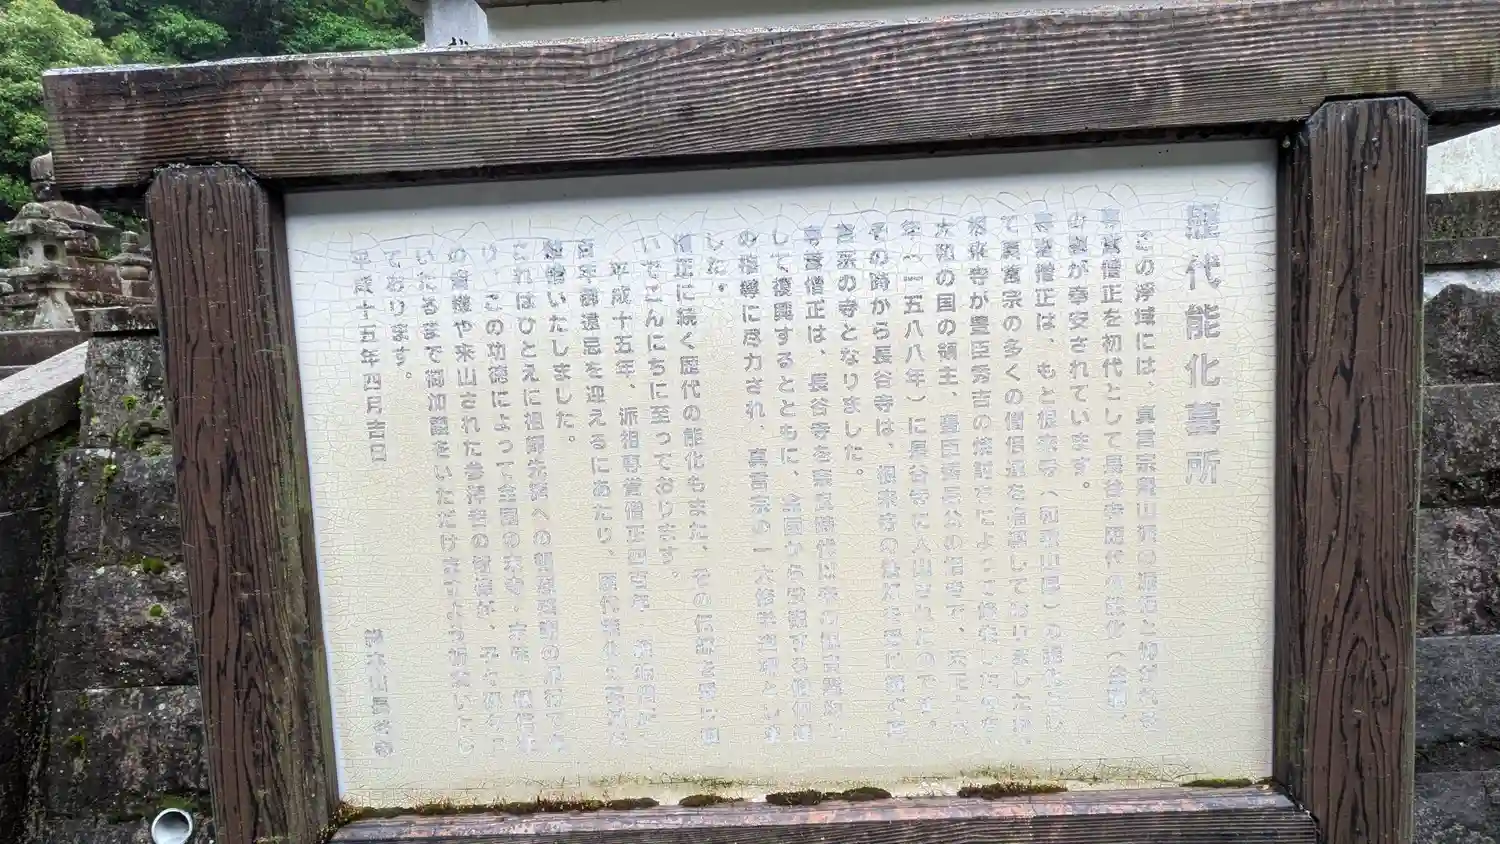 歴代能化墓所
この浄域には、真言宗豊山派の派祖と仰がれる
専誉僧正を初代として長谷寺歴代の能化(
の墓が奉安されています。
専誉僧正は、もと根来寺(和歌山県)の
て真言宗の多くの僧侶達を指導しておりましたが、
根来寺が豊臣秀吉の焼討ちによって
大和の国の領主、豊臣秀長公の招きで、天正十六
年(一五八八年)に長谷寺に入山されたのです。
その時から長谷寺は、根来寺の
言宗の寺となりました。
専誉僧正は、長谷寺を奈良時代以来の観音霊場と
して復興するとともに、全国から参集する
の指導に尽力され、真言宗の一大修学道場と
した。
僧正に続く歴代の能化もまた、その伝統を受け継
いでこんにちに至っております。
平成十五年、派祖専誉僧正四百年
百年御遠忌を迎えるにあたり、歴代能化の墓所を
いたしました。
これはひとえに祖師先徳への報恩謝徳の
り、この功徳によって全国の末寺・
の皆様や来山された参拝者の皆様が、
いたるまで御加護をいただけますよう祈念いたし
ております。
平成十五年四月吉日
総本山長谷寺